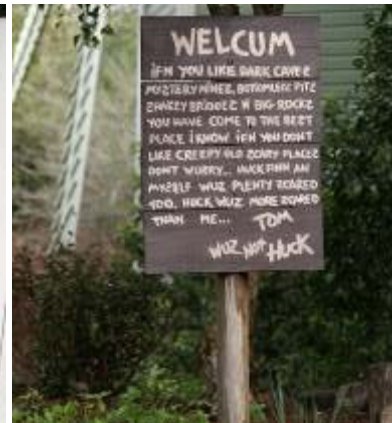 WELCUM
IFN YOU LIKE DARK CAVES
MYZTERY MINEZ, BOTOMLESS PITZ
SHAKEY BRIDGEZ N BIG ROCKZ
YOU HAVE COME TO THE BEZT
PLACE I KNOW IFN YOU DONT
LIKE CREEPY OLD ZCARY PLACEZ
DONT WORRY... HUCK FINN AN
MYZELF WUZ PLENTY ZCARED
TOO. HUCK WUZ MORE ZCARED
THAN ME... TOM
WUZ NOT HUCK